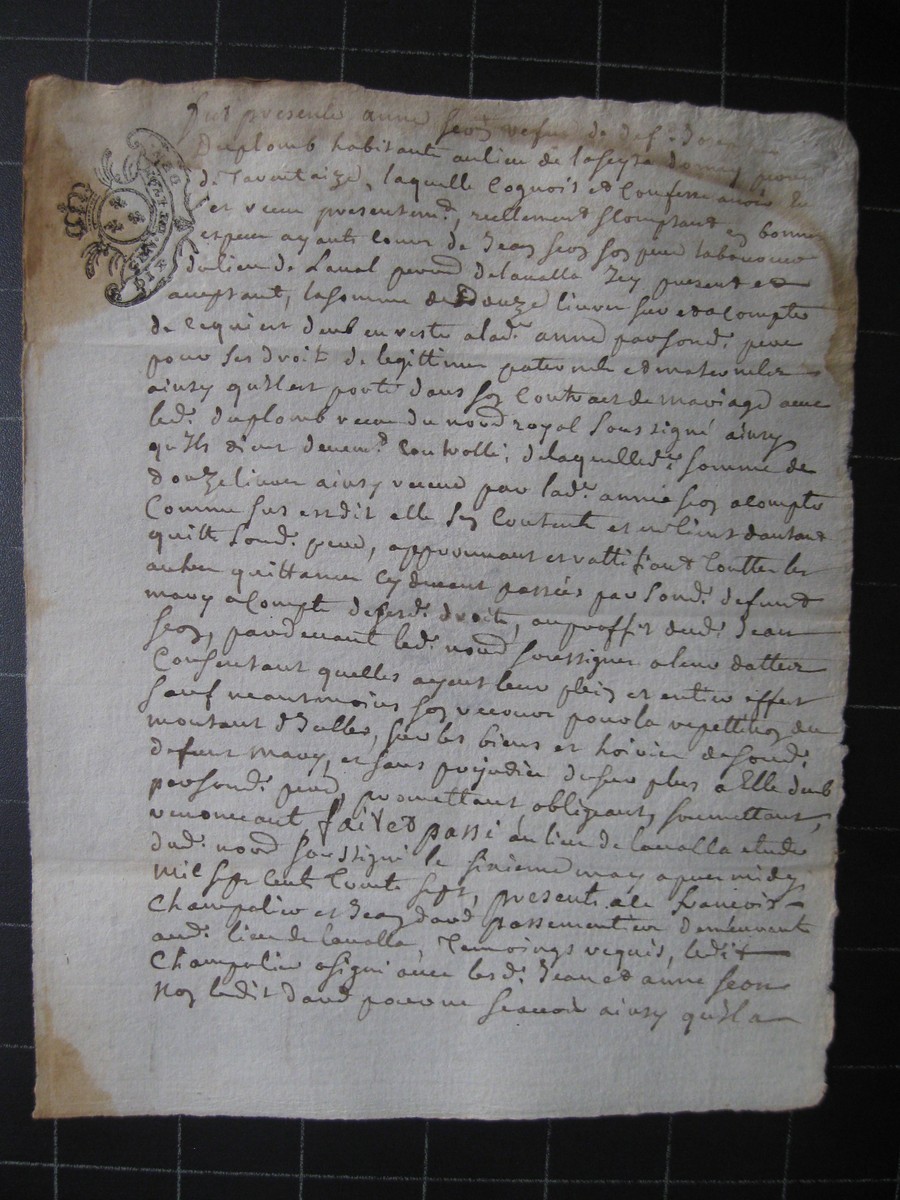 Fut presente anne Seon vefue de def.
Duplomb habitante au lieu de la seyta
de Tarentaize, laquelle Cognois et Confesse avoir Eu
et receu presentemt, reellement Scomptant en bonnes
especes ayants Cours de Jean Seon son pere laboureur
du lieu de Laval parred de lavalla Icy present et
aceptant, la somme de Douze livres sur et a Compte
de ce qui est deub en reste a lad. anne par sond. pere
pour ses droit de legittime paternelle et maternelle
ainsy qu'il est porté dans son Contract de mariage avec
led. Duplomb receu du nored royal soussigné ainsy
qu'ils dient devemt Controllé, de laquelled. somme de
douze livres ainsy receue par lad. anne Seon a Compte
Comme sus est dit elle sen Contente et en tient dautant
quitte sond. pere, approuvant et rattifiant touttes les
autres quittances cy devant passées par sond. defunt
mary a Compte desd. droits, au proffit dud. Jean
Seon, pardevant led. nored soussigné a leur datte
Consentant quelles ayent leur plein et entier effet
sauf neantmoins son recour pour la repettition du
montant d'Icelles, sur les biens et hoirie de sond.
defunt mary, et sans prejudice de son plus a Elle deub
par sond. pere, promettant, obligeant, soumettant,
renonceant fait et passé au lieu de lavalla etude
dud. nored soussigné le sixieme may apres midy
mil sept cent trente sept, presents a ce francois
Champalier et Jean david passementier demeurants
aud. lieu de lavalla, temoings requis, ledit
Champalier a signé avec lesd. Jean et anne Seon
non ledit david pour ne scavoir ainsy qu'il a